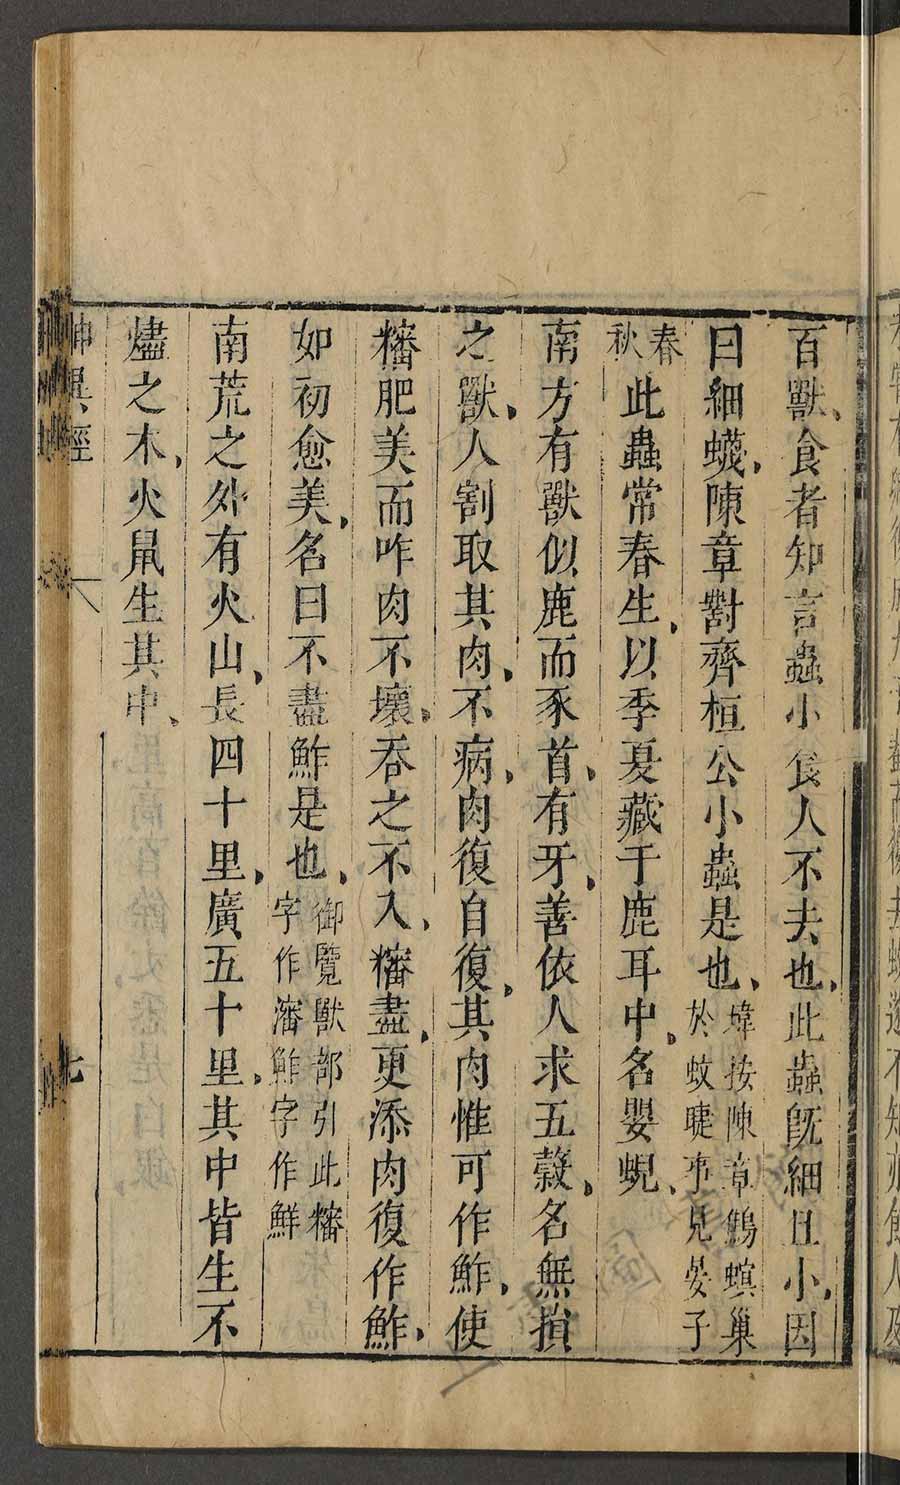 百獸、食者知言蟲小食人不去也、此蟲既細且小、因
曰細蠛、陳章對齊桓公小蟲是也、煒按陳章鷦螟巢
於蚊睫事見晏子
春
秋此蟲常春生、以季夏藏于鹿耳中、名嬰蜺、
南方有獸似鹿而豕首、有牙、善依人求五穀、名無損
之獸、人割取其肉、不病、肉復自復、其肉惟可作鮓、使
糝肥美而咋肉不壞、吞之不入、糝盡、更添肉復作鮓、
如初愈美、名曰不盡鮓是也、御覽獸部引此糝
字作瀋鮓字作鮮
南荒之外有火山、長四十里、廣五十里、其中皆生不
燼之木、火鼠生其中、
神異經
七